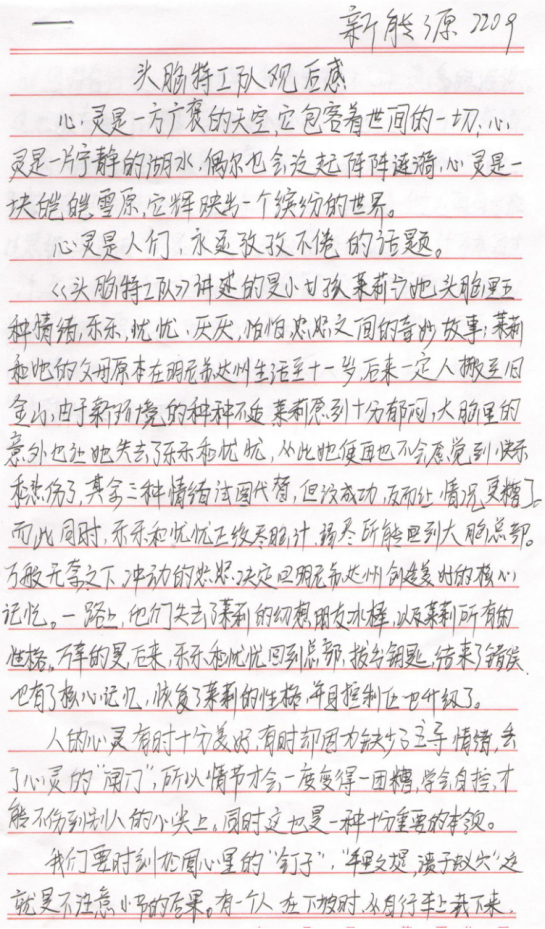 一
新能源2209
头脑特工队观后感
心灵是一方广袤的天空,它包容着世间的一切,心
灵是一片宁静的湖水,偶尔也会泛起阵阵涟漪,心灵是一
块皑皑雪原,它辉映出一个缤纷的世界。
心灵是人们,永远孜孜不倦的话题。
《头脑特工队》讲述的是小女孩莱莉与她头脑里五
种情绪,乐乐,忧忧,厌厌,怕怕,怒怒之间的奇妙故事;莱莉
和她的父母原本在明尼苏达州生活至十一岁,后来一家人搬至旧
金山,由于新环境的种种不适莱莉感到十分郁闷,大脑里的
意外也让她失去了乐乐和忧忧,从此她便再也不会感觉到快乐
和悲伤了,其余三种情绪试图代替,但没成功,反而让情况更糟了。
而此同时,乐乐和忧忧正绞尽脑汁,竭尽所能回到大脑总部。
万般无奈之下,冲动的怒怒决定回明尼苏达州创造美好的核心
记忆。一路上,他们失去了莱莉的幻想朋友冰棒,以及莱莉所有的
性格,万幸的是,后来,乐乐和忧忧回到总部,拔出钥匙,结束了错误,
也有了核心记忆,恢复了莱莉的性格,并且控制台也升级了。
人的心灵有时十分美好,有时却因为缺少了主导情绪,丢
了心灵的“闸门”,所以情节才会,一度变得一团糟,学会自控,才
能不伤到别人的心尖上。同时这也是一种十分重要的本领。
我们要时刻检阅心里的“钉子”,“千里之堤,溃于蚁穴”这
就是不注意小节的后果。有一个人在下坡时,从自行车上栽下来,